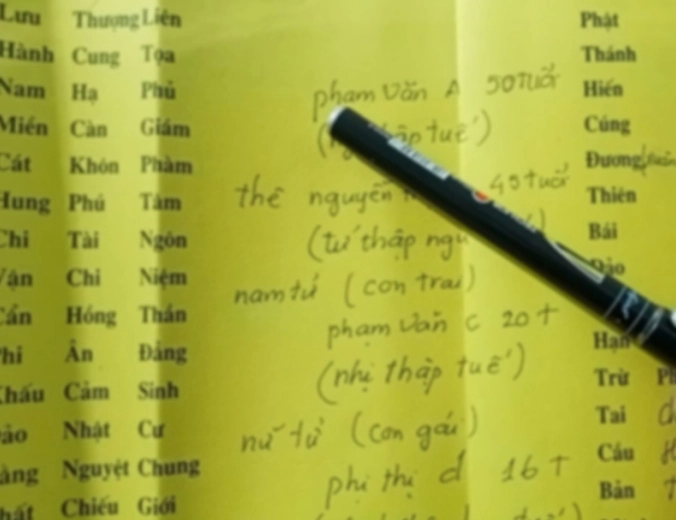 Lưu Thượng Liên
Hành Cung Tọa
Nam Hạ Phủ
Miền Càn Giám
Cát Khôn Phàm
Hung Phú Tâm
Chi Tài Ngôn
Vận Chi Niệm
Cẩn Hồng Thần
Phi Ân Đảng
Khấu Cảm Sinh
Nhật Cư
Nguyệt Chung
Chiếu Giới
phạm văn A 50 tuổi
thập tuế)
thê nguyễn 45 tuổi
(tứ thập ngũ
nam tử (con trai)
phạm văn c 20 t
(nhị thập tuế)
nữ tử (con gái)
phị thị d 16 t
Phật
Thánh
Hiến
Cúng
Đương
Thiên
Bái
Đảo
Hạn
Trừ
Tai
Cầu
Bản